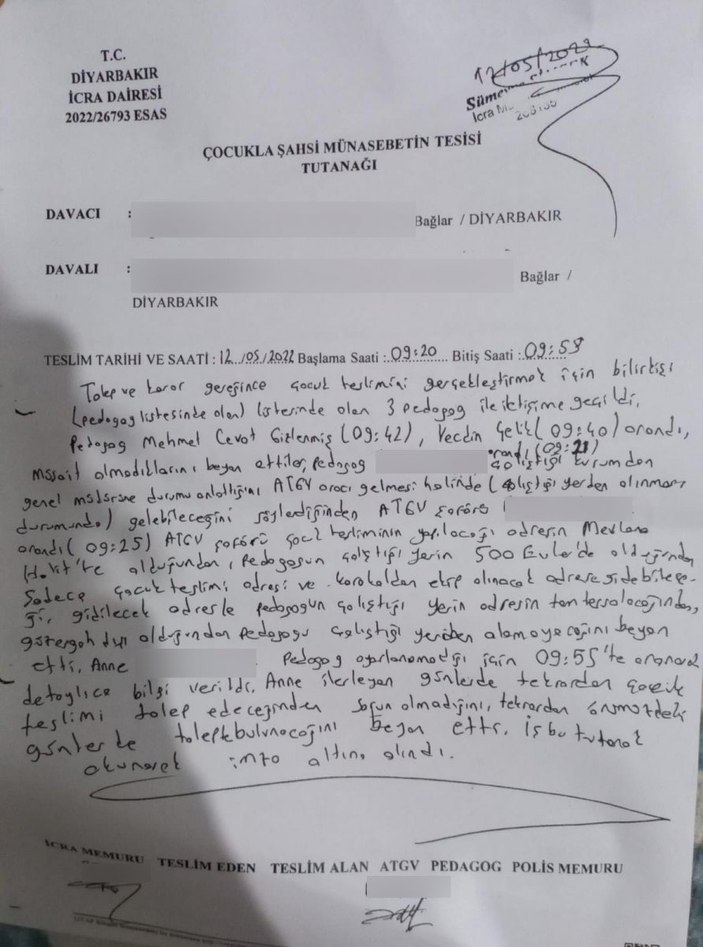 T.C.
DİYARBAKIR
İCRA DAİRESİ
2022/26793 ESAS
12/05/2022
ÇOCUKLA ŞAHSİ MÜNASEBETİN TESİSİ
TUTANAĞI
DAVACI : Bağlar / DİYARBAKIR
DAVALI : Bağlar /
DİYARBAKIR
TESLİM TARİHİ VE SAATİ : 12/05/2022 Başlama Saati : 09:20 Bitiş Saati : 09:58
Talep ve karar gereğince çocuk teslimini gerçekleştirmek için bilirkişi
(pedagog listesinde olan) listerinde olan 3 pedagog ile iletişime geçildi.
Pedagog Mehmet Cevat Gizlenmiş (09:42), Vecdin Çelik (09:40) arandı,
müsait olmadıklarını beyan ettiler, pedagog arandı (09:21) çalıştığı kurumdan
genel müdürüne durumu anlattığını ATGV aracı gelmesi halinde (çalıştığı yerden alınması
durumunda) gelebileceğini söylediğinden ATGV şoförü
arandı (09:25) ATGV şoförü çocuk tesliminin yapılacağı adresin Mevlana
Halit'te olduğundan, pedagogun çalıştığı yerin 500 Evler'de olduğundan
Sadece çocuk teslimi adresi ve karakoldan ekip alınacak adrese gidebilece-
ği, gidilecek adresle pedagogun çalıştığı yerin adresin tam ters olacağından,
güzergah dışı olduğundan pedagogu çalıştığı yerden alamayacağını beyan
etti, Anne pedagog ayarlanamadığı için 09:55'te aranarak
detaylıca bilgi verildi, Anne ilerleyen günlerde tekrardan çocuk
teslimi talep edeceğinden sorun olmadığını, tekrardan önümüzdeki
günlerde talepte bulunacağını beyan etti, iş bu tutanak
okunarak imza altına alındı.
İCRA MEMURU TESLİM EDEN TESLİM ALAN ATGV PEDAGOG POLİS MEMURU